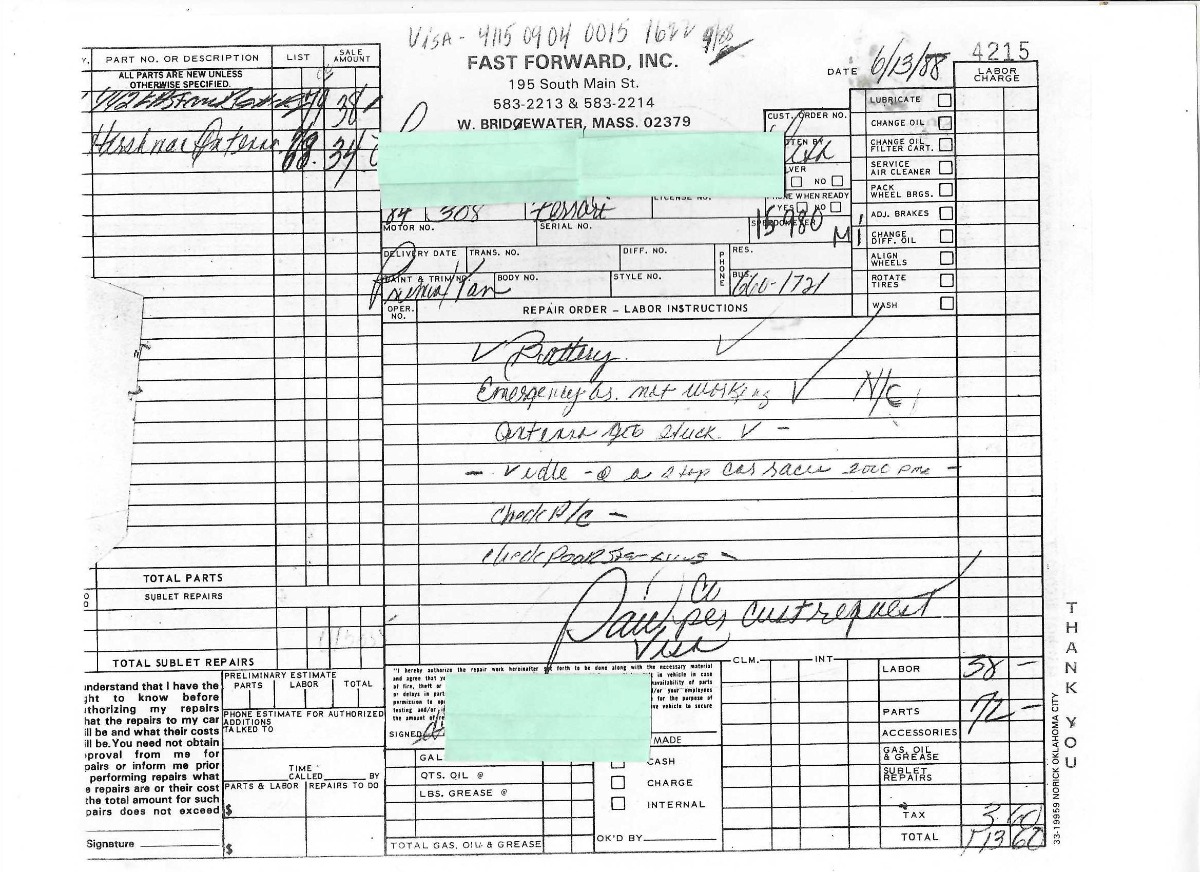 VISA - 4115 0904 0015 1622 9/88
FAST FORWARD, INC.
195 South Main St.
583-2213 & 583-2214
W. BRIDGEWATER, MASS. 02379
DATE 6/13/88
4215
PART NO. OR DESCRIPTION LIST SALE AMOUNT
ALL PARTS ARE NEW UNLESS OTHERWISE SPECIFIED.
38
34
CUST. ORDER NO.
TEN BY
VER
NO
NE WHEN READY
YES NO
84 308 Ferrari
LICENSE NO.
MOTOR NO. SERIAL NO.
SPEEDOMETER
15980 Mi
DELIVERY DATE TRANS. NO. DIFF. NO. PHONE RES.
PAINT & TRIM NO. BODY NO. STYLE NO. BUS. 660-1721
Tan
LABOR CHARGE
LUBRICATE
CHANGE OIL
CHANGE OIL FILTER CART.
SERVICE AIR CLEANER
PACK WHEEL BRGS.
ADJ. BRAKES
CHANGE DIFF. OIL
ALIGN WHEELS
ROTATE TIRES
WASH
OPER. NO. REPAIR ORDER – LABOR INSTRUCTIONS
✓ Battery ✓
Emergency not working ✓ N/C
Antenna stuck ✓ -
- ✓ idle - @ a stop car races 2000 -
check A/C -
check Poor
per cust request
Visa
TOTAL PARTS
SUBLET REPAIRS
TOTAL SUBLET REPAIRS
understand that I have the
ght to know before
thorizing my repairs
hat the repairs to my car
ill be and what their costs
ill be. You need not obtain
pproval from me for
pairs or inform me prior
performing repairs what
e repairs are or their cost
the total amount for such
pairs does not exceed
Signature
PRELIMINARY ESTIMATE
PARTS LABOR TOTAL
PHONE ESTIMATE FOR AUTHORIZED ADDITIONS
TALKED TO
TIME CALLED BY
PARTS & LABOR REPAIRS TO DO
$
$
"I hereby authorize the repair work hereinafter set forth to be done along with the necessary material
and agree that
in vehicle in case
of fire, theft or
availability of parts
or delays in part
/or your employees
permission to op
for the purpose of
testing and/or
ve vehicle to secure
the amount of re
SIGNED
GAL
QTS. OIL @
LBS. GREASE @
TOTAL GAS, OIL & GREASE
MADE
CASH
CHARGE
INTERNAL
OK'D BY
CLM. INT
LABOR 38 -
PARTS 72 -
ACCESSORIES
GAS, OIL & GREASE
SUBLET REPAIRS
TAX 3 60
TOTAL 113 60
THANK YOU
33-19959 NORICK OKLAHOMA CITY